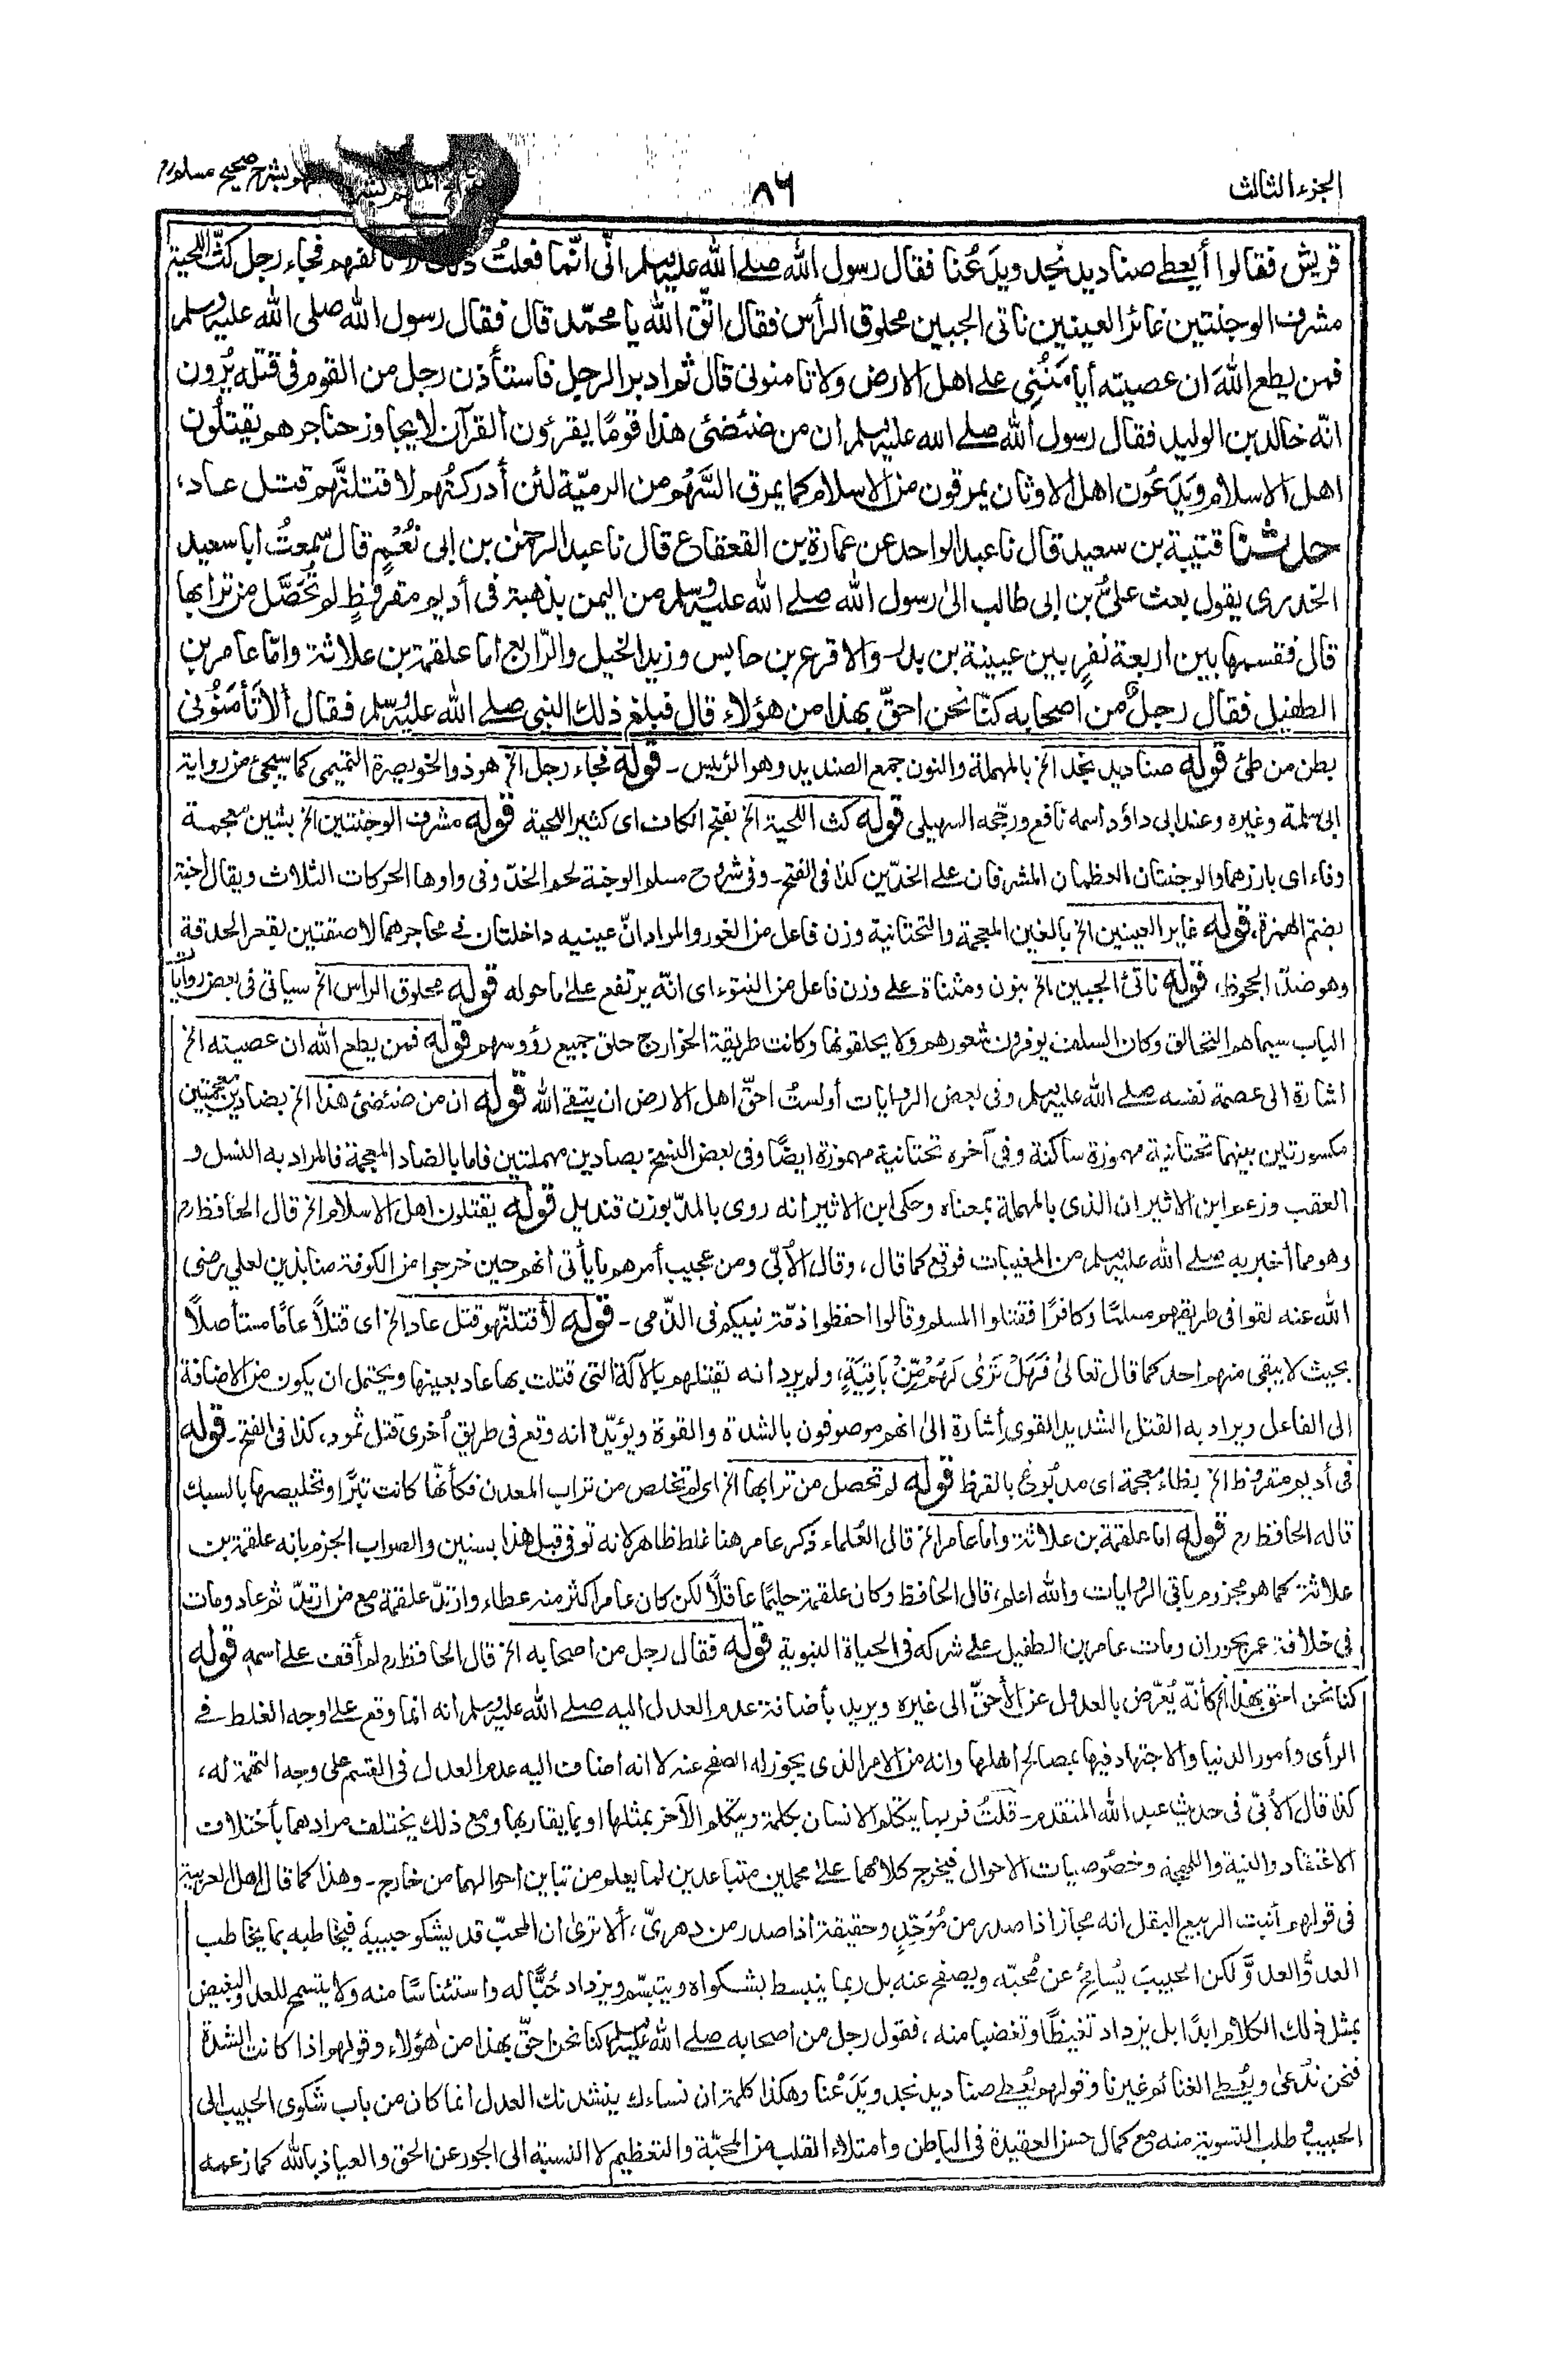 الجزء الثالث
٨٦
بشرح صحيح مسلم
قريش فقالوا أيعطى صناديد نجد ويدَعُنا فقال رسول الله صلے الله عليہ وسلم انّى انّما فعلتُ ذلك لاتألفهم فجاء رجل كثّ اللحية
مشرف الوجنتين غائر العينين ناتى الجبين محلوق الرأس فقال اتّق الله يا محمّد قال فقال رسول الله صلى الله عليہ وسلم
فمن يطع اللهَ ان عصيته أيأمَنُنِى علے اهل الارض ولا تامنونى قال ثم ادبر الرجل فاستأذن رجل من القوم فى قتله يُرون
انّه خالد بن الوليد فقال رسول الله صلے الله عليہ وسلم ان من ضئضئى هذا قومًا يقرئون القرآن لا يجاوز حناجرهم يقتلُون
اهل الاسلام ويَدَعُون اهل الاوثان يمرقون من الاسلام كما يمرق السَّهُم من الرميّة لئن أدركتُهم لاقتلنَّهم قتل عاد،
حدثنا قتيبة بن سعيد قال نا عبد الواحد عن عمارة بن القعقاع قال نا عبد الرحمٰن بن ابى نُعْمٍ قال سمعتُ ابا سعيد
الخدرى يقول بعث علىُّ بن ابى طالب الىٰ رسول الله صلے الله عليہ وسلم من اليمن بذهبة فى أديم مقروظٍ لم تُحَصَّل من ترابها
قال فقسمها بين اربعة نفرٍ بين عيينة بن بدر والاقرع بن حابس وزيد الخيل والرّابع اما علقمة بن علاثة وامّا عامر بن
الطفيل فقال رجلٌ من اصحابه كنّا نحن احقّ بهذا من هؤلاء قال فبلغ ذلك النبى صلے الله عليہ وسلم فقال ألا تأمَنُونى
بطن من طئ قوله صناديد نجد الخ بالمهملة والنون جمع الصنديد وهو الرئيس ـ قوله فجاء رجل الخ هو ذو الخويصرة التميمى كما سيجئ من رواية
ابى سلمة وغيره وعند ابى داؤد اسمه نافع ورجّحه السهيلى قوله كث اللحية الخ بفتح الكاف اى كثير اللحية قوله مشرف الوجنتين الخ بشين معجمة
وفاء اى بارزهما والوجنتان العظمان المشرفان على الخدّين كذا فى الفتح ـ وفى شروح مسلم الوجنة لحم الخدّ وفى واوها الحركات الثلاث ويقال اجنة
بضم الهمزة، قوله غاير العينين الخ بالغين المعجمة والتحتانية وزن فاعل من الغور والمراد انّ عينيه داخلتان فے محاجرهما لاصقتين بقعر الحدقة
وهو ضدّ الجحوظ، قوله ناتئ الجبين الخ بنون ومثناة علے وزن فاعل من النتوء اى انّه يرتفع علے ما حوله قوله محلوق الراس الخ سياتى فى بعض روايات
الباب سيماهم التحالق وكان السلف يوفرون شعورهم ولا يحلقونها وكانت طريقة الخوارج حلق جميع رؤوسهم قوله فمن يطع الله ان عصيته الخ
اشارة الى عصمة نفسه صلے الله عليہ وسلم وفى بعض الروايات أولستُ احقّ اهل الارض ان يتقے الله قوله ان من ضئضئ هذا الخ بضادين معجمتين
مكسورتين بينهما تحتانية مهموزة ساكنة وفى آخره تحتانية مهموزة ايضًا وفى بعض النسخ بصادين مهملتين فاما بالضاد المعجمة فالمراد به النسل و
العقب وزعم ابن الاثير ان الذى بالمهملة بمعناه وحكى ابن الاثير انه روى بالمدّ بوزن قنديل قوله يقتلون اهل الاسلام الخ قال الحافظ رح
وهو مما أخبر به صلے الله عليہ وسلم من المغيبات فوقع كما قال، وقال الأبّى ومن عجيب أمرهم ما يأتى انهم حين خرجوا من الكوفة منابذين لعلي رضى
الله عنه لقوا فى طريقهم مسلمًا وكافرًا فقتلوا المسلم وقالوا احفظوا ذمّة نبيكم فى الذّمى ـ قوله لأقتلنّهم قتل عاد الخ اى قتلاً عامًا مستأصلاً
بحيث لا يبقى منهم احد كما قال تعالىٰ فَهَلْ تَرٰى لَهُمْ مِّنْ بَاقِيَةٍ، ولم يرد انه يقتلهم بالآلة التى قتلت بها عاد بعينها ويحتمل ان يكون من الاضافة
الى الفاعل ويراد به القتل الشديد القوى إشارة الىٰ انهم موصوفون بالشدة والقوة ويؤيّده انه وقع فى طريق أخرى قتل ثمود، كذا فى الفتح ـ قوله
فى أديم مقروظ الخ بظاء معجمة اى مدبُوغ بالقرظ قوله لم تحصل من ترابها الخ اى لم تخلص من تراب المعدن فكأنّها كانت تبرًا وتخليصها بالسبك
قاله الحافظ رح قوله اما علقمة بن علاثة واما عامر الخ قال العُلماء ذكر عامر هنا غلط ظاهر لانه توفى قبل هذا بسنين والصواب الجزم بانه علقمة بن
علاثة كما هو مجزوم باقى الروايات والله اعلم، قال الحافظ وكان علقمة حليمًا عاقلًا لكن كان عامر اكثر منه عطاء وارتدّ علقمة مع من ارتدّ ثم عاد ومات
فى خلافة عمر بحوران ومات عامر بن الطفيل علے شركه فى الحياة النبوية قوله فقال رجل من اصحابه الخ قال الحافظ رح لم أقف علے اسمه قوله
كنا نحن احق بهذا الخ كأنّه يُعرّض بالعدول عن الأحقّ الى غيره ويريد بأضافة عدم العدل اليه صلے الله عليہ وسلم انه انما وقع علے وجه الغلط فے
الرأى وأمور الدنيا والاجتهاد فيها بمصالح اهلها وانه من الامر الذى يجوز له الصفح عنه لا انه اضاف اليه عدم العدل فى القسم على وجه التهمة له،
كذا قال الأبّى فى حديث عبد الله المتقدم ـ قلتُ فربما يتكلم الانسان بكلمة ويتكلم الآخر بمثلها او بما يقاربها ومع ذلك يختلف مرادهما بأختلاف
الاعتقاد والنية واللهجة وخصُوصيات الاحوال فيخرج كلامهما علىٰ محملين متباعدين لما يعلم من تباين احوالهما من خارج ـ وهذا كما قال اهل العربية
فى قولهم أنبت الربيع البقل انه مجاز اذا صدر من مُوَحّدٍ وحقيقة اذا صدر من دهرىّ، ألا ترىٰ ان المحبّ قد يشكو حبيبهٗ فيخاطبه بما يخاطب
العدوُّ العدوَّ لكن الحبيبَ يُسامحُ عن مُحبّه، ويصفح عنه بل ربما ينبسط بشكواه ويتبسّم ويزداد حُبًّا له واستئناسًا منه ولا يتسمح للعدو البغيض
بمثل ذلك الكلام ابدًا بل يزداد تغيظًا وتغضبا منه، فقول رجل من اصحابه صلے الله عليہ وسلم كنا نحن احقّ بهذا من هٰؤلاء وقولهم اذا كانت الشدة
فنحن نُدعىٰ ويُعطے الغنائم غيرنا وقولهم يُعطے صناديد نجد ويَدَعُنا وهكذا كلمة ان نساءك ينشدنك العدل انما كان من باب شكوى الحبيب الى
الحبيب فے طلب التسوية منه مع كمال حسن العقيدة فى الباطن وامتلاء القلب من المحبّة والتعظيم لا النسبة الى الجور عن الحق والعياذ بالله كما زعمه